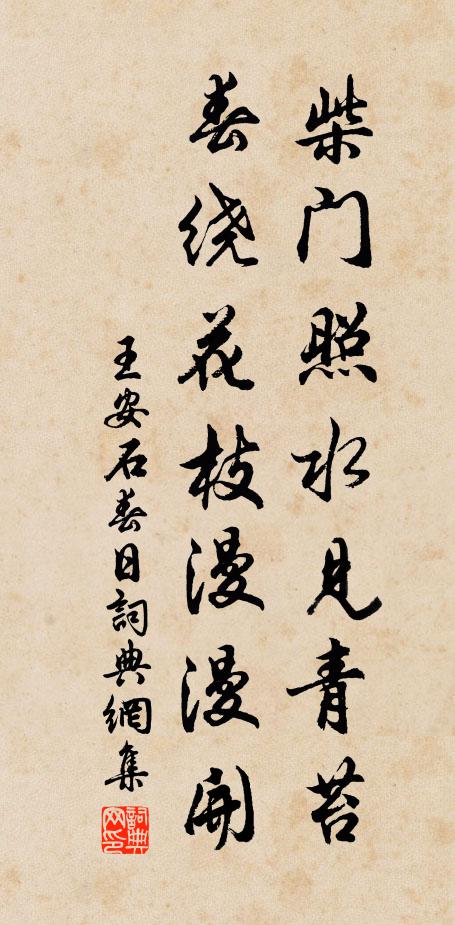 柴门照水见青苔
春绕花枝漫漫开
王安石春日詞典網集
詞典网印